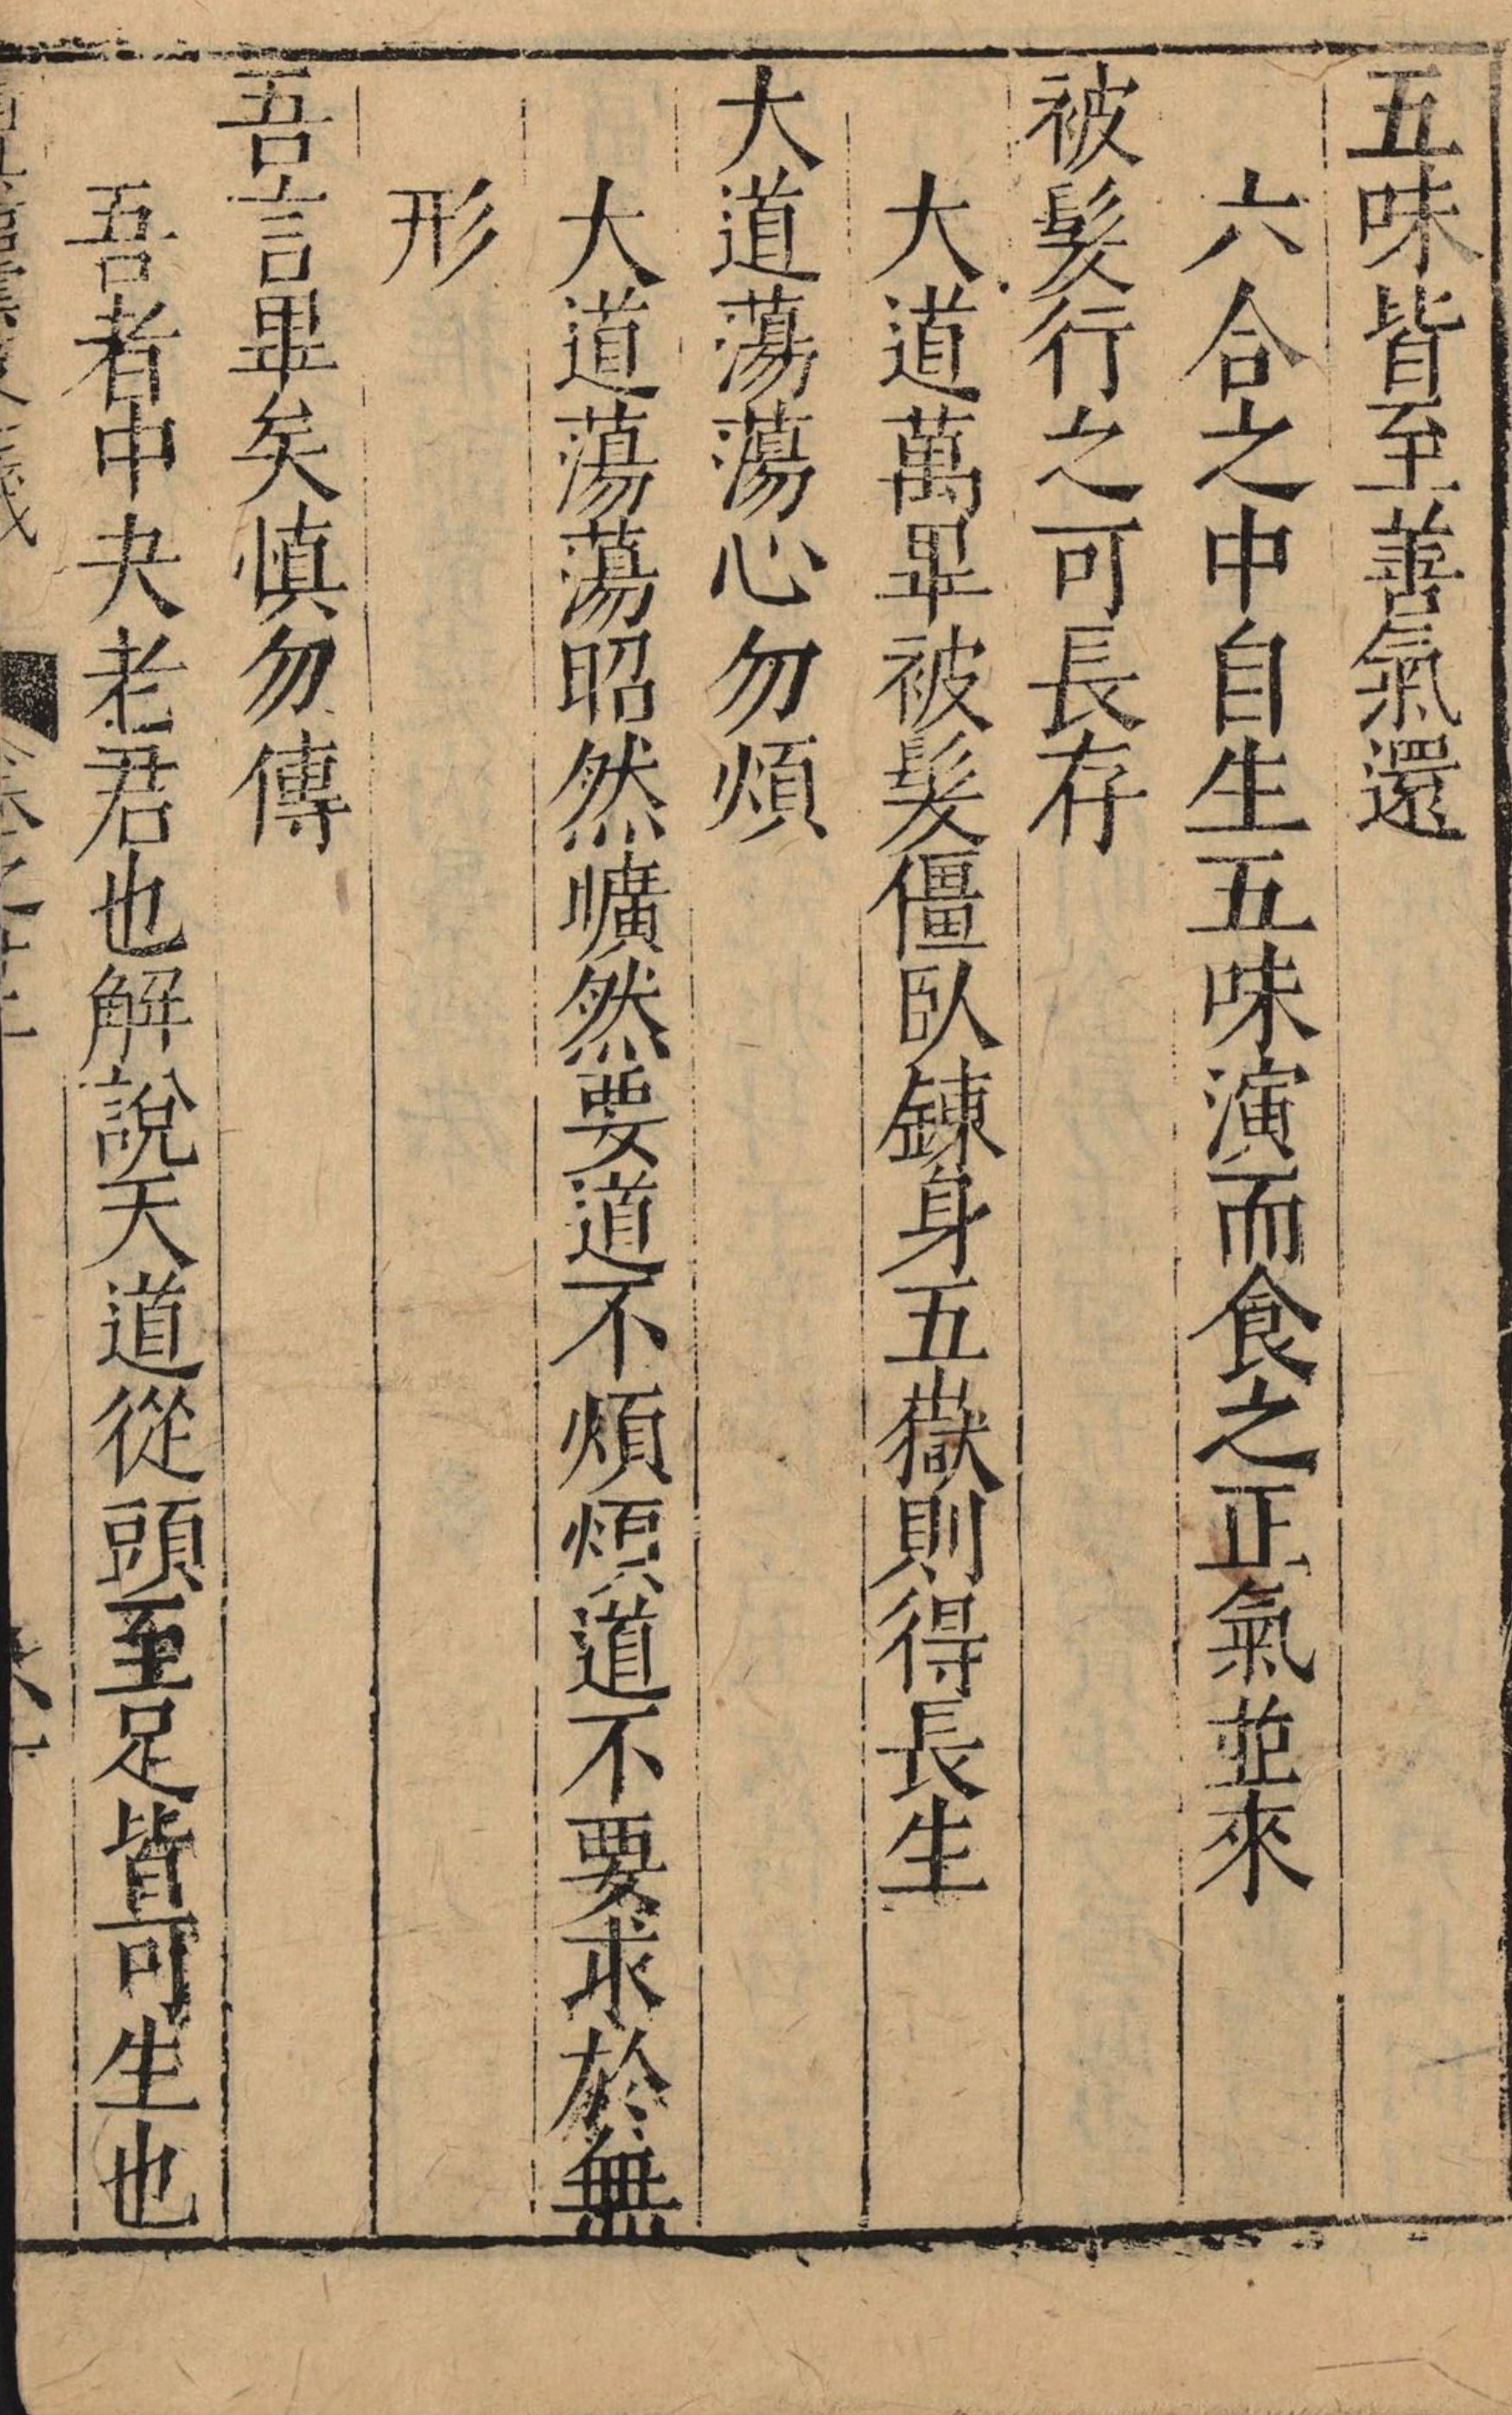 五味皆至善氣還
六合之中自生五味演而食之正氣並來
被髮行之可長存
大道萬畢被髮僵臥鍊身五嶽則得長生
大道蕩蕩心勿煩
大道蕩蕩昭然曠然要道不煩煩道不要求於無
形
吾言畢矣慎勿傳
吾者中夬老君也解說天道從頭至足皆可生也